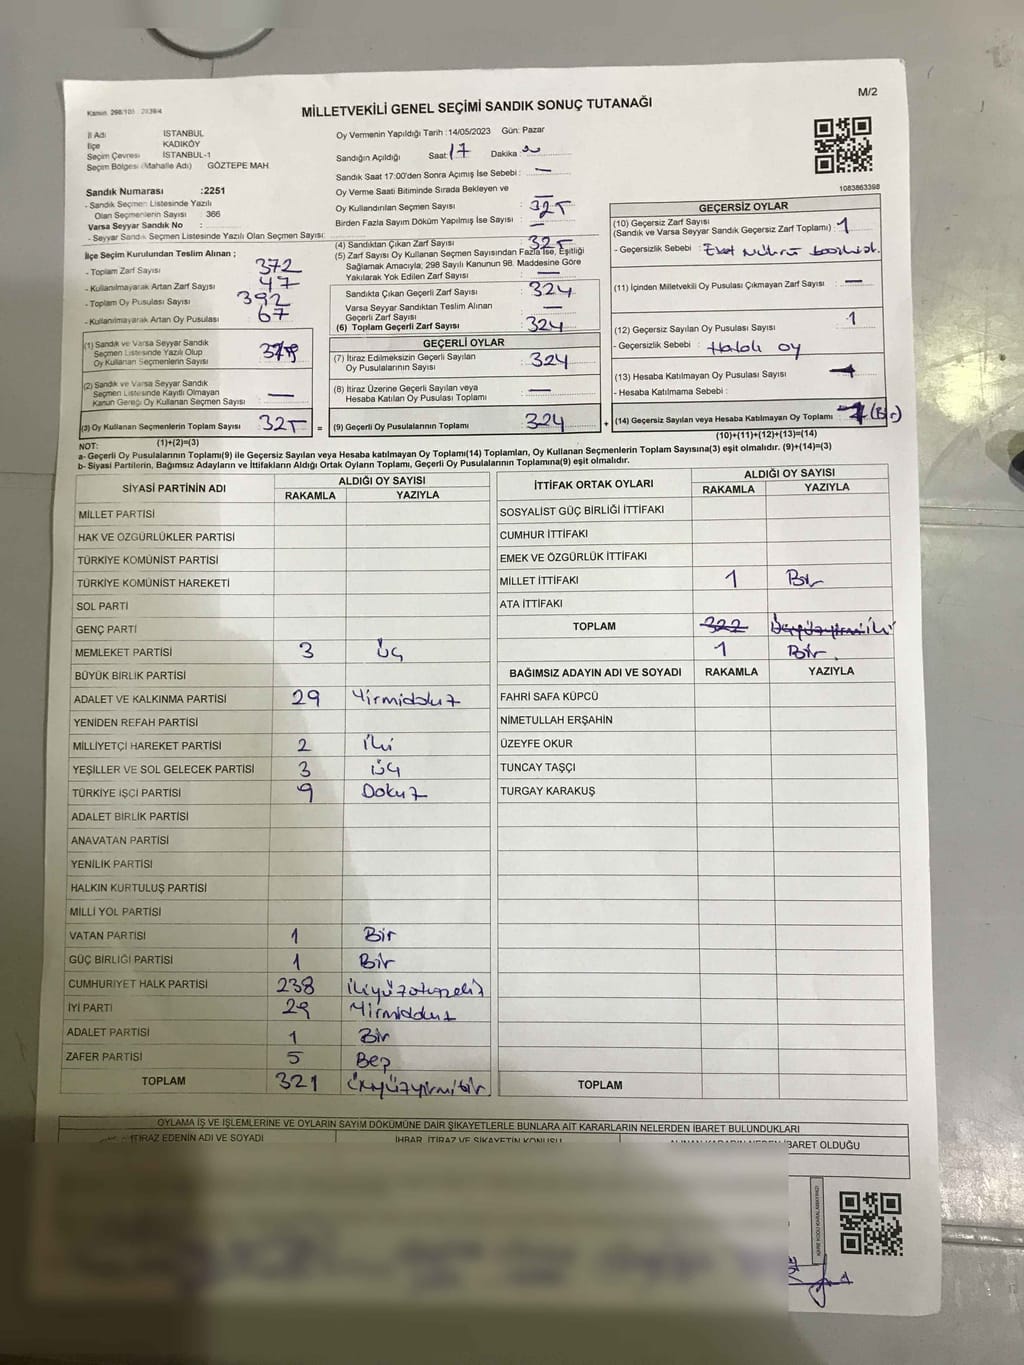 M/2
Kanun. 298/103
MİLLETVEKİLİ GENEL SEÇİMİ SANDIK SONUÇ TUTANAĞI
İl Adı İSTANBUL
İlçe KADIKÖY
Seçim Çevresi İSTANBUL-1
Seçim Bölgesi (Mahalle Adı) GÖZTEPE MAH.
Sandık Numarası :2251
- Sandık Seçmen Listesinde Yazılı
Olan Seçmenlerin Sayısı : 366
Varsa Seyyar Sandık No :
- Seyyar Sandık Seçmen Listesinde Yazılı Olan Seçmen Sayısı:
İlçe Seçim Kurulundan Teslim Alınan ;
- Toplam Zarf Sayısı 372
- Kullanılmayarak Artan Zarf Sayısı 47
- Toplam Oy Pusulası Sayısı 392
- Kullanılmayarak Artan Oy Pusulası 67
(1) Sandık ve Varsa Seyyar Sandık
Seçmen Listesinde Yazılı Olup
Oy Kullanan Seçmenlerin Sayısı
(2) Sandık ve Varsa Seyyar Sandık
Seçmen Listesinde Kayıtlı Olmayan
Kanun Gereği Oy Kullanan Seçmen Sayısı —
(3) Oy Kullanan Seçmenlerin Toplam Sayısı 325 =
Oy Vermenin Yapıldığı Tarih : 14/05/2023 Gün: Pazar
Sandığın Açıldığı Saat: 17 Dakika :
Sandık Saat 17:00'den Sonra Açımış İse Sebebi : —
Oy Verme Saati Bitiminde Sırada Bekleyen ve
Oy Kullandırılan Seçmen Sayısı : —
Birden Fazla Sayım Döküm Yapılmış İse Sayısı : —
(4) Sandıktan Çıkan Zarf Sayısı : 325
(5) Zarf Sayısı Oy Kullanan Seçmen Sayısından Fazla İse, Eşitliği
Sağlamak Amacıyla, 298 Sayılı Kanunun 98. Maddesine Göre
Yakılarak Yok Edilen Zarf Sayısı : —
Sandıkta Çıkan Geçerli Zarf Sayısı : 324
Varsa Seyyar Sandıktan Teslim Alınan
Geçerli Zarf Sayısı : —
(6) Toplam Geçerli Zarf Sayısı : 324
GEÇERLİ OYLAR
(7) İtiraz Edilmeksizin Geçerli Sayılan
Oy Pusulalarının Sayısı : 324
(8) İtiraz Üzerine Geçerli Sayılan veya
Hesaba Katılan Oy Pusulası Toplamı : —
(9) Geçerli Oy Pusulalarının Toplamı : 324 +
1083863398
GEÇERSİZ OYLAR
(10) Geçersiz Zarf Sayısı
(Sandık ve Varsa Seyyar Sandık Geçersiz Zarf Toplamı) : 1
- Geçersizlik Sebebi : Evet mührü
(11) İçinden Milletvekili Oy Pusulası Çıkmayan Zarf Sayısı : —
(12) Geçersiz Sayılan Oy Pusulası Sayısı : 1
- Geçersizlik Sebebi : Hatalı oy
(13) Hesaba Katılmayan Oy Pusulası Sayısı : —
- Hesaba Katılmama Sebebi :
(14) Geçersiz Sayılan veya Hesaba Katılmayan Oy Toplamı : 1 (Bir)
(10)+(11)+(12)+(13)=(14)
NOT: (1)+(2)=(3)
a- Geçerli Oy Pusulalarının Toplamı(9) ile Geçersiz Sayılan veya Hesaba katılmayan Oy Toplamı(14) Toplamları, Oy Kullanan Seçmenlerin Toplam Sayısına(3) eşit olmalıdır. (9)+(14)=(3)
b- Siyasi Partilerin, Bağımsız Adayların ve İttifakların Aldığı Ortak Oyların Toplamı, Geçerli Oy Pusulalarının Toplamına(9) eşit olmalıdır.
SİYASİ PARTİNİN ADI ALDIĞI OY SAYISI
RAKAMLA YAZIYLA
MİLLET PARTİSİ
HAK VE ÖZGÜRLÜKLER PARTİSİ
TÜRKİYE KOMÜNİST PARTİSİ
TÜRKİYE KOMÜNİST HAREKETİ
SOL PARTİ
GENÇ PARTİ
MEMLEKET PARTİSİ 3 Üç
BÜYÜK BİRLİK PARTİSİ
ADALET VE KALKINMA PARTİSİ 29 Yirmidokuz
YENİDEN REFAH PARTİSİ
MİLLİYETÇİ HAREKET PARTİSİ 2 İki
YEŞİLLER VE SOL GELECEK PARTİSİ 3 Üç
TÜRKİYE İŞCİ PARTİSİ 9 Dokuz
ADALET BİRLİK PARTİSİ
ANAVATAN PARTİSİ
YENİLİK PARTİSİ
HALKIN KURTULUŞ PARTİSİ
MİLLİ YOL PARTİSİ
VATAN PARTİSİ 1 Bir
GÜÇ BİRLİĞİ PARTİSİ 1 Bir
CUMHURİYET HALK PARTİSİ 238 İkiyüzotuzsekiz
İYİ PARTİ 29 Yirmidokuz
ADALET PARTİSİ 1 Bir
ZAFER PARTİSİ 5 Beş
TOPLAM 321 Üçyüzyirmibir
İTTİFAK ORTAK OYLARI ALDIĞI OY SAYISI
RAKAMLA YAZIYLA
SOSYALİST GÜÇ BİRLİĞİ İTTİFAKI
CUMHUR İTTİFAKI
EMEK VE ÖZGÜRLÜK İTTİFAKI
MİLLET İTTİFAKI 1 Bir
ATA İTTİFAKI
TOPLAM 322 Üçyüzyirmiiki
1 Bir
BAĞIMSIZ ADAYIN ADI VE SOYADI RAKAMLA YAZIYLA
FAHRİ SAFA KÜPCÜ
NİMETULLAH ERŞAHİN
ÜZEYFE OKUR
TUNCAY TAŞÇI
TURGAY KARAKUŞ
TOPLAM
OYLAMA İŞ VE İŞLEMLERİNE VE OYLARIN SAYIM DÖKÜMÜNE DAİR ŞİKAYETLERLE BUNLARA AİT KARARLARIN NELERDEN İBARET BULUNDUKLARI
İTİRAZ EDENİN ADI VE SOYADI İHBAR, İTİRAZ VE ŞİKAYETİN KONUSU İBARET OLDUĞU